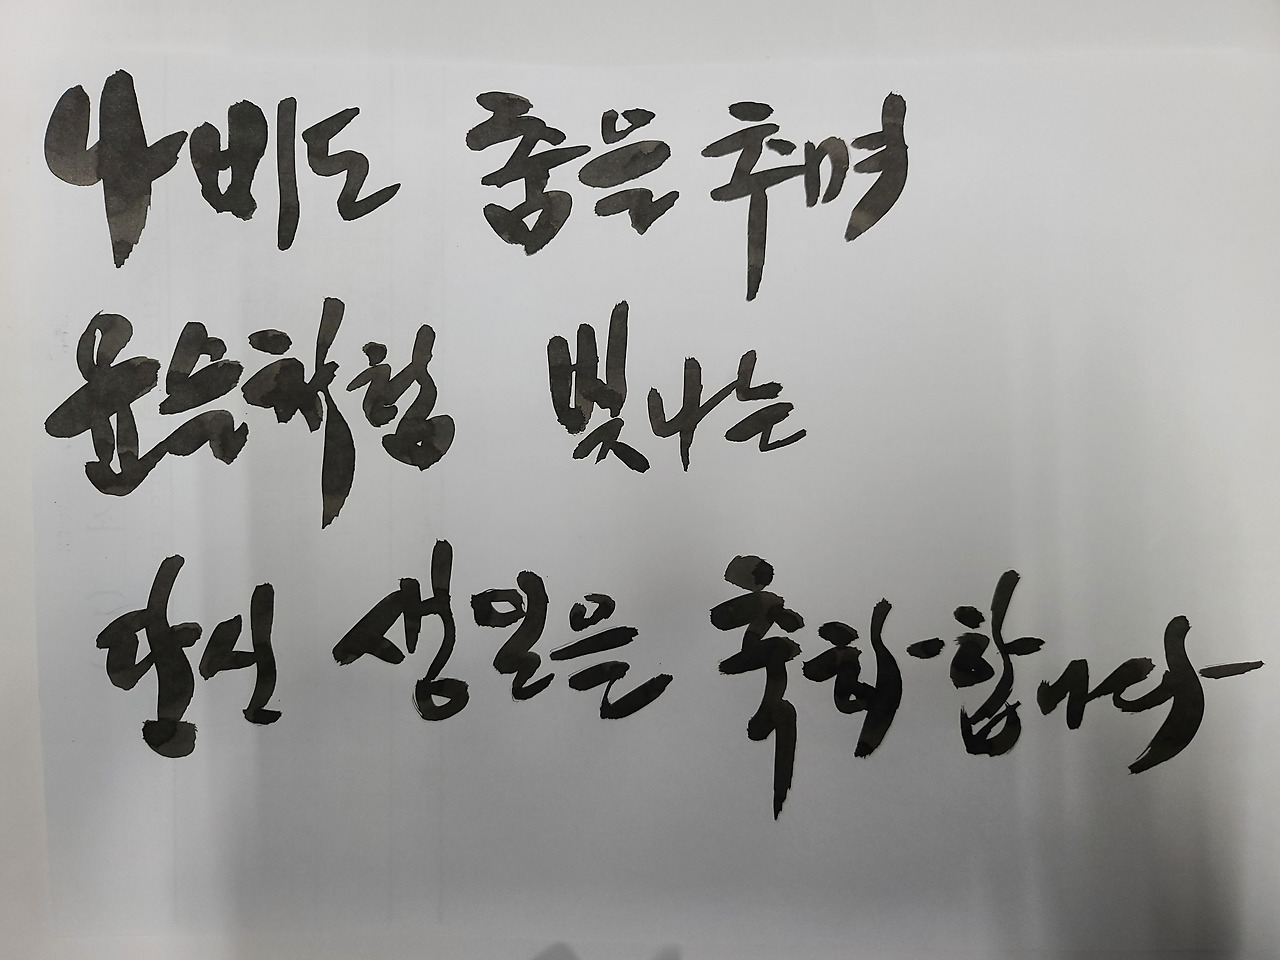 나비도 춤을 추며
윤슬처럼 빛나는
당신 생일을 축하합니다